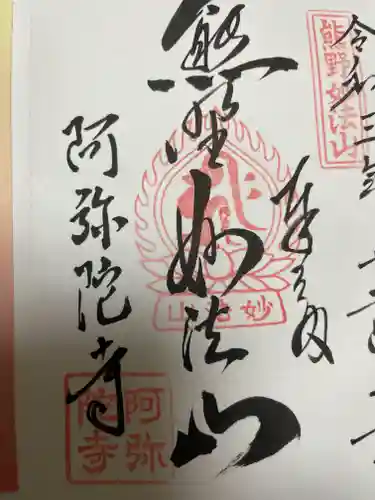 令和三年
熊野妙法山
奉拝
熊野妙法山
妙法山
阿弥陀寺
阿弥陀寺